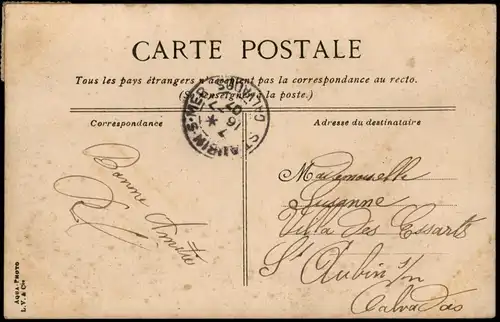 CARTE POSTALE
Tous les pays étrangers n'acceptent pas la correspondance au recto.
(Se renseigner à la poste.)
Correspondance
Adresse du destinataire
ST AUBIN-S-MER
CALVADOS
7
16 7
07
Bonne Amitié
Mademoiselle
Susanne
Villa des Essarts
St Aubin s/m
Calvados
AQUA-PHOTO
L. V. & Cie